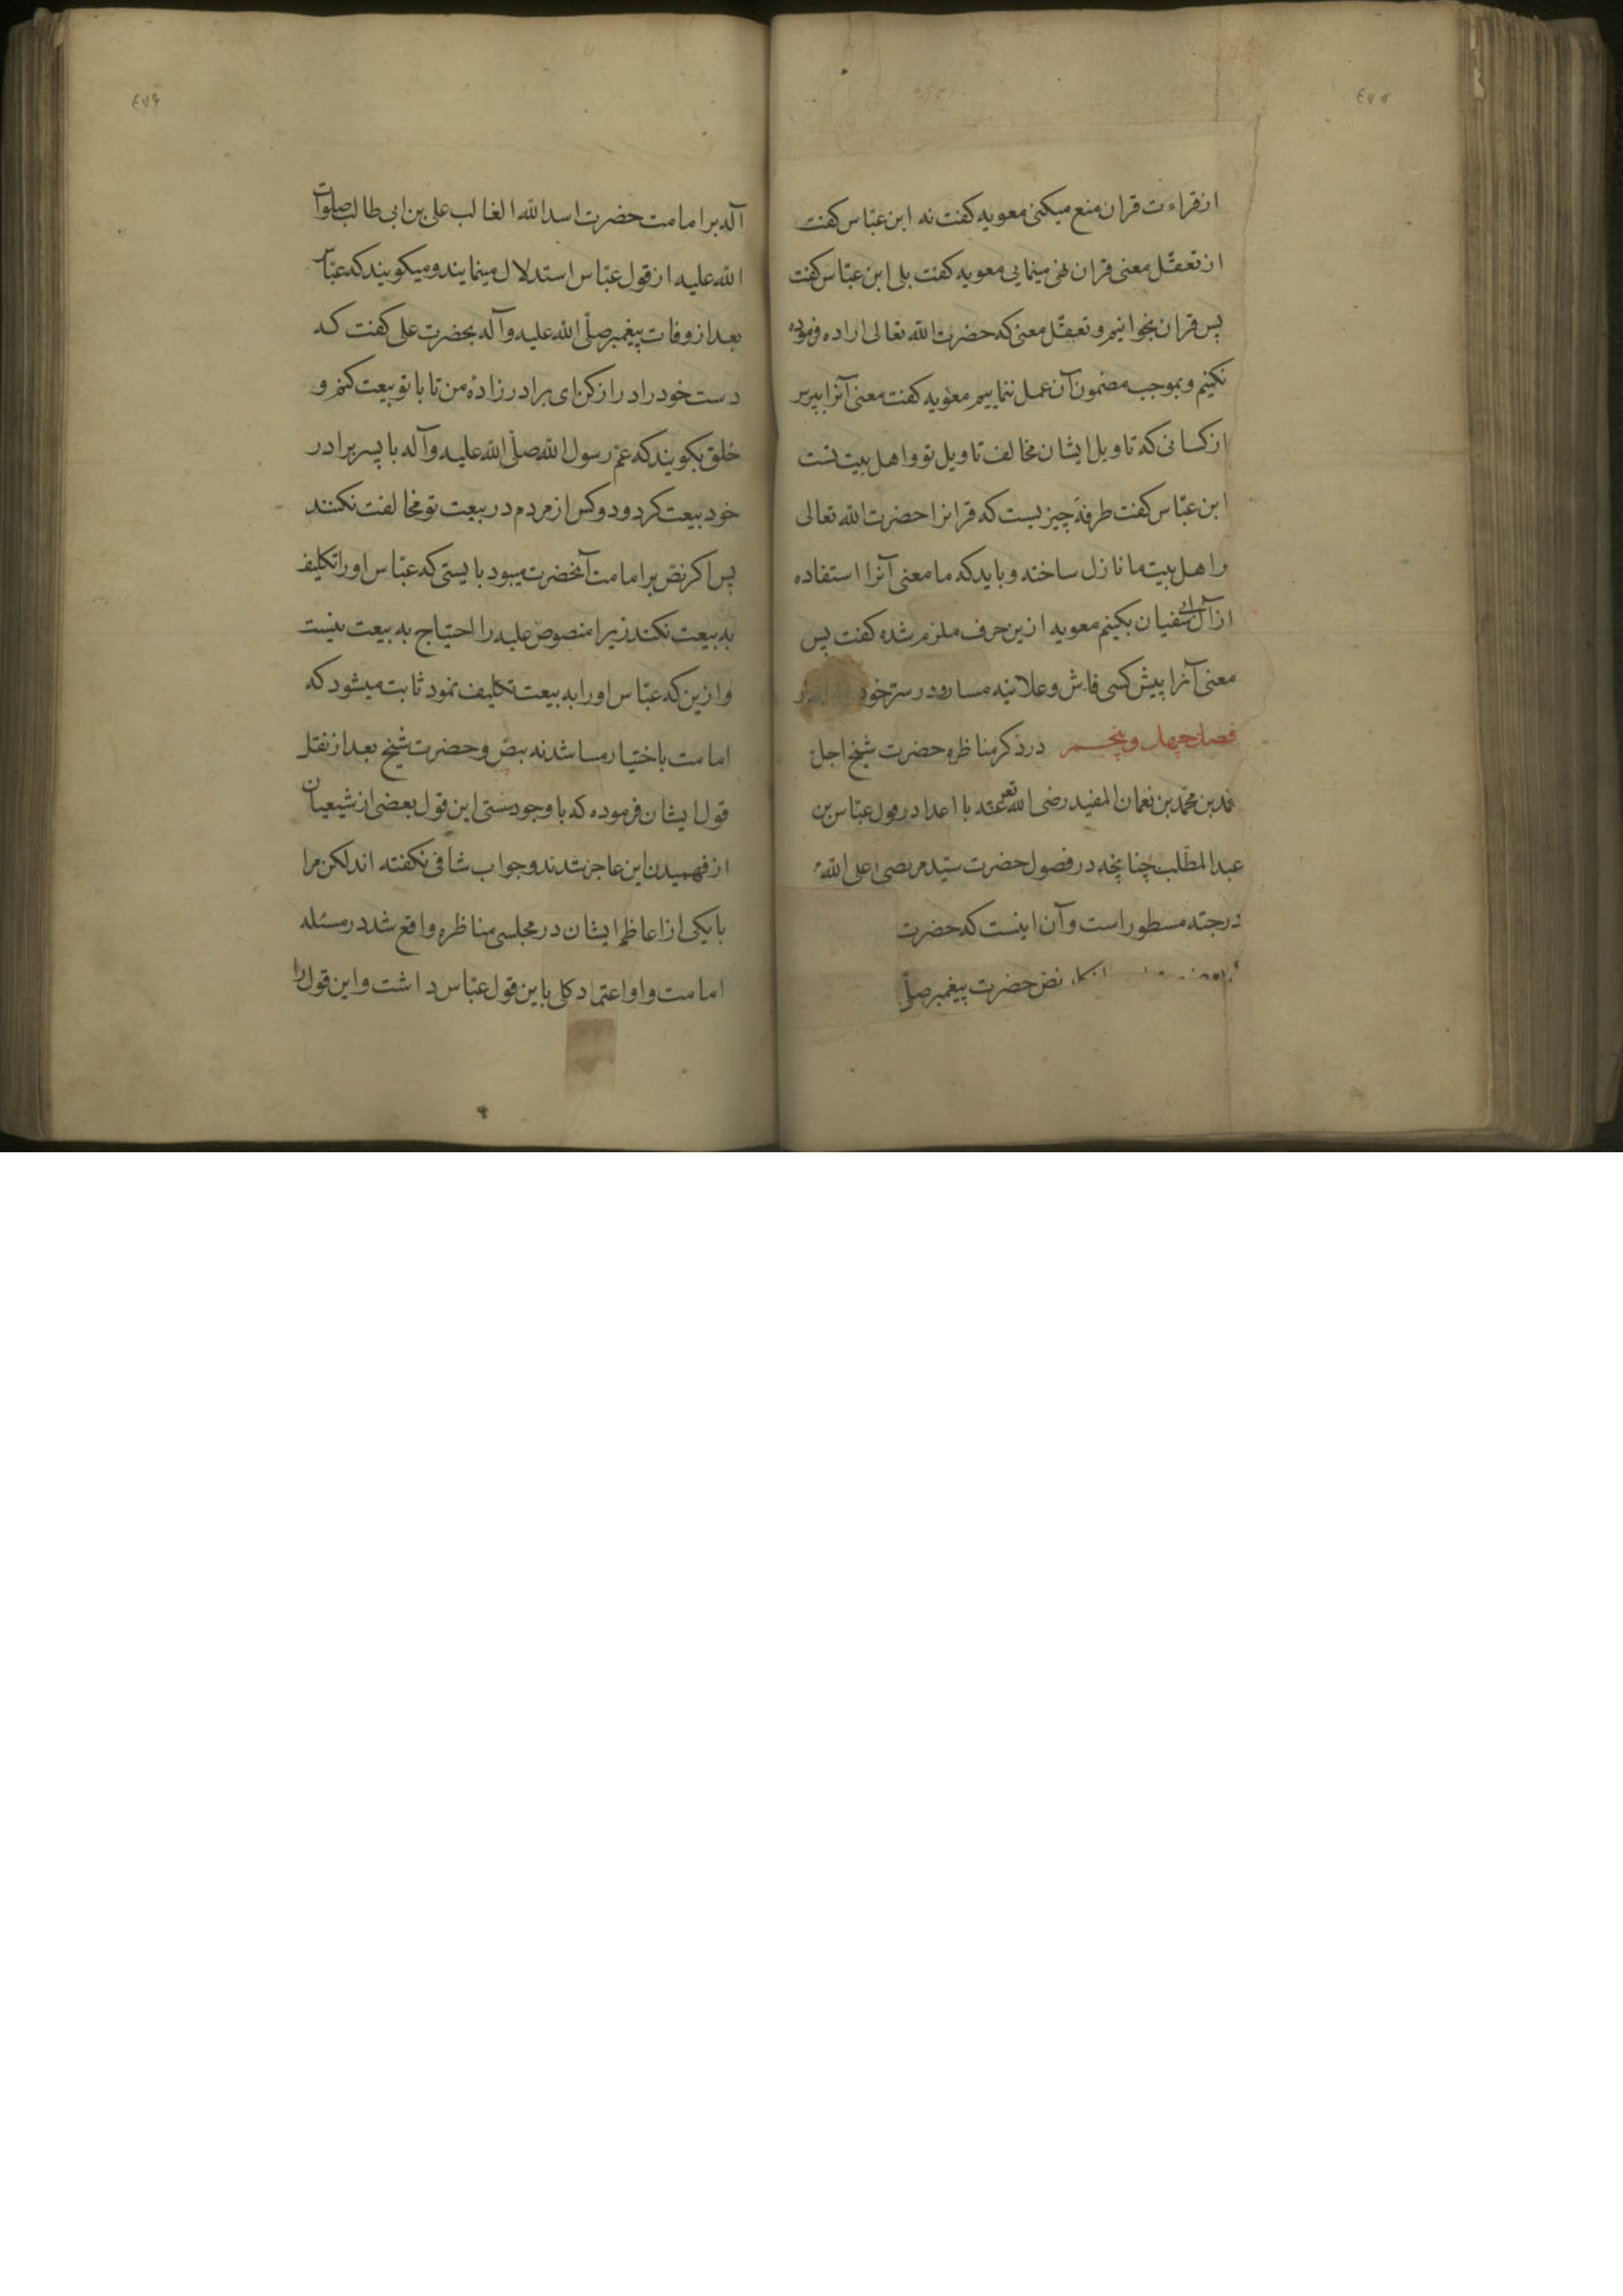 ٤٧٥
از قراءت قران منع میکنی معویه کفت نه ابن عبّاس کفت
از تعقّل معنی قران نهی مینمایی معویه کفت بلی ابن عبّاس کفت
پس قران بخوانیم و تعقّل معنی که حضرت الله تعالی اراده فرموده
نکنیم و بموجب مضمون آن عمل ننماییم معویه کفت معنی آنرا بپرس
از کسانی که تاویل ایشان مخالف تاویل تو و اهل بیت تست
ابن عبّاس کفت طرفه چیزیست که قرانرا حضرت الله تعالی
بر اهل بیت ما نازل ساخته و باید که ما معنی آنرا استفاده
از آل ابی سفیان بکنیم معویه ازین حرف ملزم شده کفت پس
معنی آنرا پیش کسی فاش و علانیه مساز و در ستر خود
فصل چهل و پنجم در ذکر مناظره حضرت شیخ اجل
محمّد بن محمّد بن نعمان المفید رضی الله تعر عنه با اعدا در قول عبّاس بن
عبدالمطّلب چنانچه در فصول حضرت سیّد مرتضی اعلی الله
درجته مسطور است و آن اینست که حضرت
انکار نصّ حضرت پیغمبر صلّی
٤٧٦
آله بر امامت حضرت اسد الله الغالب علی بن ابی طالب صلوات
الله علیه از قول عبّاس استدلال مینمایند و میکویند که عبّاس
بعد از وفات پیغمبر صلّی الله علیه و آله بحضرت علی کفت که
دست خود را دراز کن ای برادرزادهٔ من تا با تو بیعت کنم و
خلق بکویند که عمّ رسول الله صلّی الله علیه و آله با پسر برادر
خود بیعت کرد و دو کس از مردم در بیعت تو مخالفت نکنند
پس اکر نصّ بر امامت آنحضرت میبود بایستی که عبّاس او را تکلیف
به بیعت نکند زیرا منصوص علیه را احتیاج به بیعت نیست
و ازین که عبّاس او را به بیعت تکلیف نمود ثابت میشود که
امامت باختیار میباشد نه بنصّ و حضرت شیخ بعد از نقل
قول ایشان فرموده که با وجود سستی این قول بعضی از شیعیان
از فهمیدن این عاجز شدند و جواب شافی نکفته اند لکن مرا
با یکی از اعاظم ایشان در مجلسی مناظره واقع شد در مسئله
امامت و او اعتماد کلی باین قول عبّاس داشت و این قول را